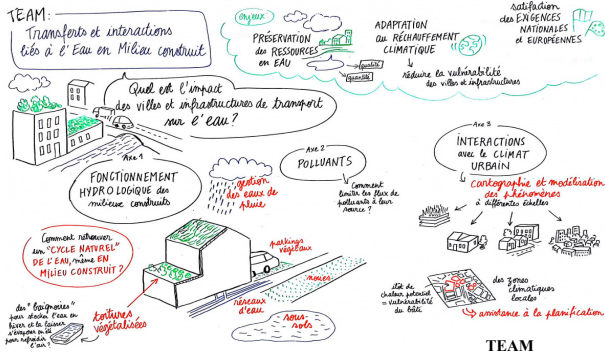 TEAM:
Transferts et interactions
liés à l'Eau en Milieu construit
Enjeux
PRÉSERVATION
des RESSOURCES
en EAU
qualité
quantité
ADAPTATION
au RÉCHAUFFEMENT
CLIMATIQUE
réduire la vulnérabilité
des villes et infrastructures
satisfaction
des EXIGENCES
NATIONALES
et EUROPÉENNES
Quel est l'impact
des villes et infrastructures de transport
sur l'eau?
Axe 1
FONCTIONNEMENT
HYDROLOGIQUE des
milieux construits
gestion
des eaux de
pluie
Axe 2
POLLUANTS
Comment
limiter les flux de
polluants à leur
source ?
Axe 3
INTERACTIONS
avec le CLIMAT
URBAIN
cartographie et modélisation
des phénomènes
à différentes échelles
Comment retrouver
un "CYCLE NATUREL"
DE L'EAU, même EN
MILIEU CONSTRUIT ?
parkings
végétaux
noues
réseaux
d'eau
sous-
sols
toitures
végétalisées
des "baignoires"
pour stocker l'eau en
hiver et la laisser
s'évaporer en été
pour refroidir
l'air ?
îlot de
chaleur potentiel
= vulnérabilité
du bâti
des zones
climatiques
locales
assistance à la planification
TEAM